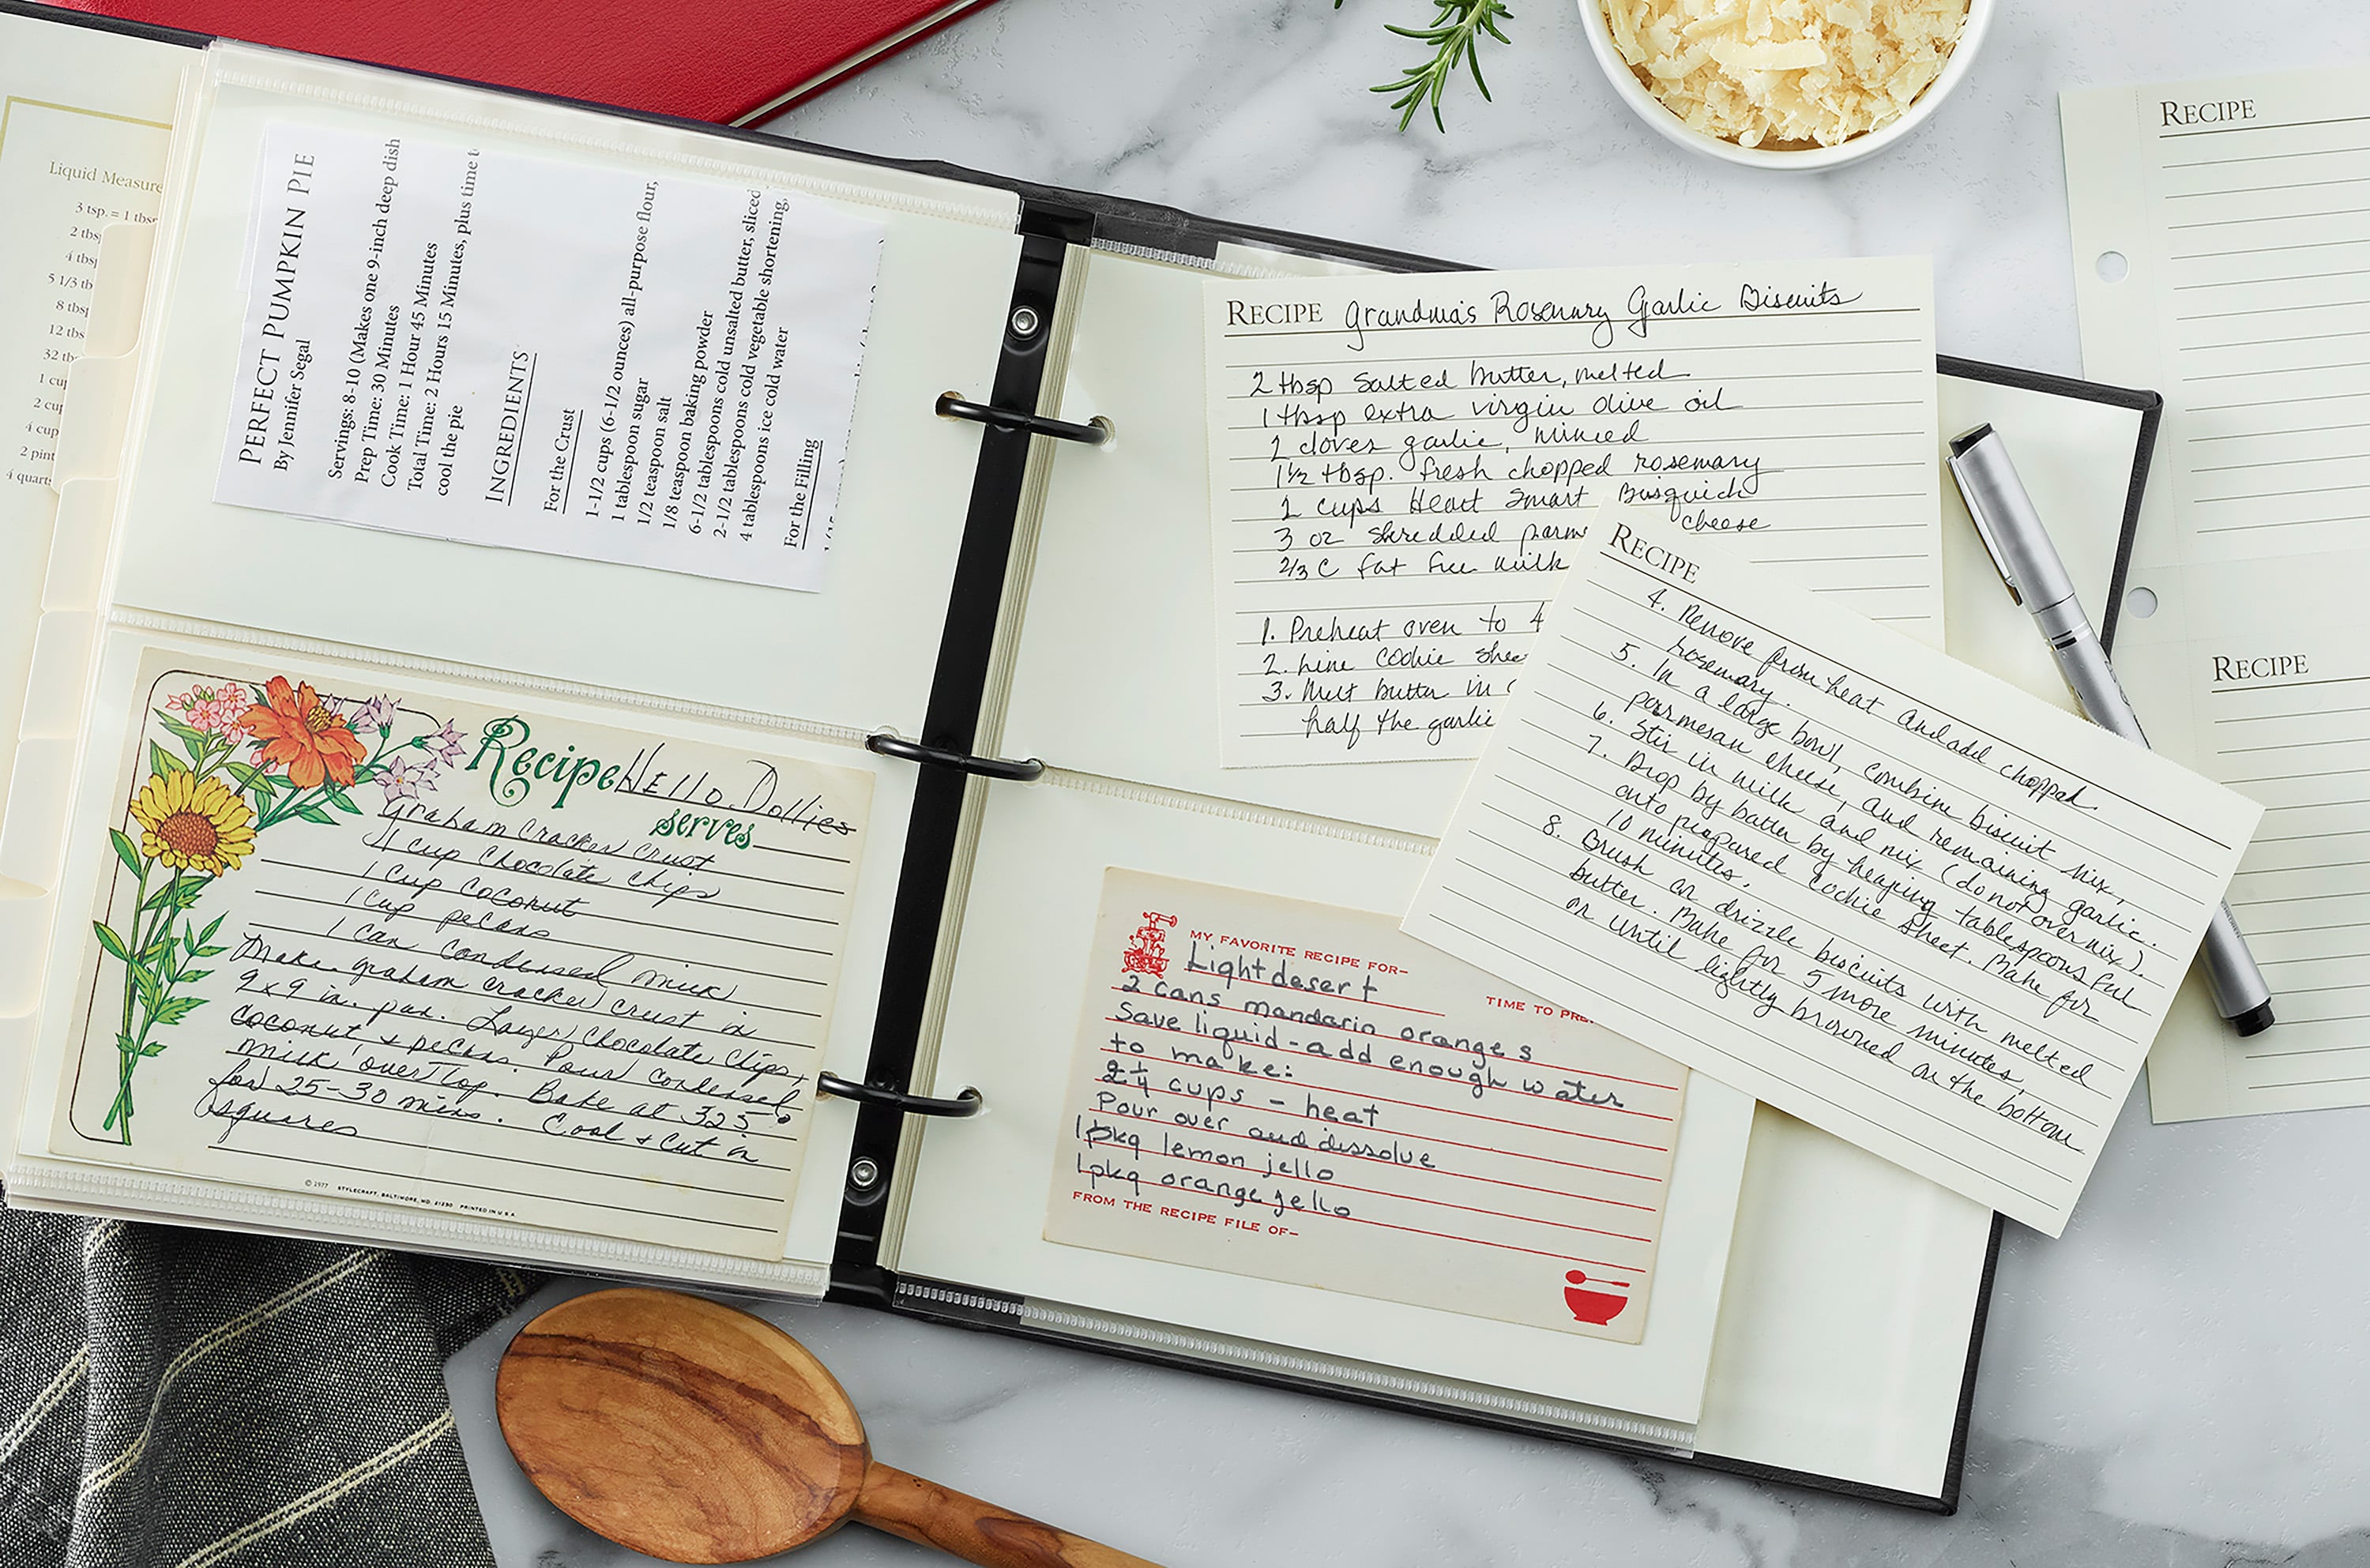 Liquid Measure
3 tsp. = 1 tbsp
2 tbsp
4 tbsp
5 1/3 tb
8 tbsp
12 tbs
32 tb
1 cup
2 cup
4 cup
2 pint
4 quart
PERFECT PUMPKIN PIE
By Jennifer Segal
Servings: 8-10 (Makes one 9-inch deep dish
Prep Time: 30 Minutes
Cook Time: 1 Hour 45 Minutes
Total Time: 2 Hours 15 Minutes, plus time t
cool the pie
INGREDIENTS
For the Crust
1-1/2 cups (6-1/2 ounces) all-purpose flour,
1 tablespoon sugar
1/2 teaspoon salt
1/8 teaspoon baking powder
6-1/2 tablespoons cold unsalted butter, sliced
2-1/2 tablespoons cold vegetable shortening,
4 tablespoons ice cold water
For the Filling
Recipe Hello Dollies
serves
Graham Cracker Crust
1 cup Chocolate chips
1 cup coconut
1 cup pecans
1 can condensed milk
Make graham cracker crust in
9x9 in. pan. Layer chocolate chips,
coconut + pecans. Pour condensed
milk over top. Bake at 325°
for 25-30 mins. Cool + cut in
squares
© 1977 STYLECRAFT, BALTIMORE, MD. 21230 PRINTED IN U.S.A.
RECIPE Grandma's Rosemary Garlic Biscuits
2 tbsp salted butter, melted
1 tbsp extra virgin olive oil
2 cloves garlic, minced
1½ tbsp. fresh chopped rosemary
2 cups Heart Smart Bisquick
3 oz shredded parm cheese
2/3 C fat free milk
1. Preheat oven to 4
2. Line cookie shee
3. Melt butter in
half the garlic
RECIPE
4. Remove from heat and add chopped
rosemary.
5. In a large bowl, combine biscuit mix,
parmesan cheese, and remaining garlic.
6. Stir in milk and mix (do not overmix).
7. Drop by batter by heaping tablespoons ful
onto prepared cookie sheet. Bake for
10 minutes.
8. Brush or drizzle biscuits with melted
butter. Bake for 5 more minutes,
or until lightly browned on the bottom
MY FAVORITE RECIPE FOR-
Light desert
TIME TO PRE
2 cans mandarin oranges
Save liquid - add enough water
to make:
2¼ cups - heat
Pour over and dissolve
1 pkg lemon jello
1 pkg orange jello
FROM THE RECIPE FILE OF-
RECIPE
RECIPE